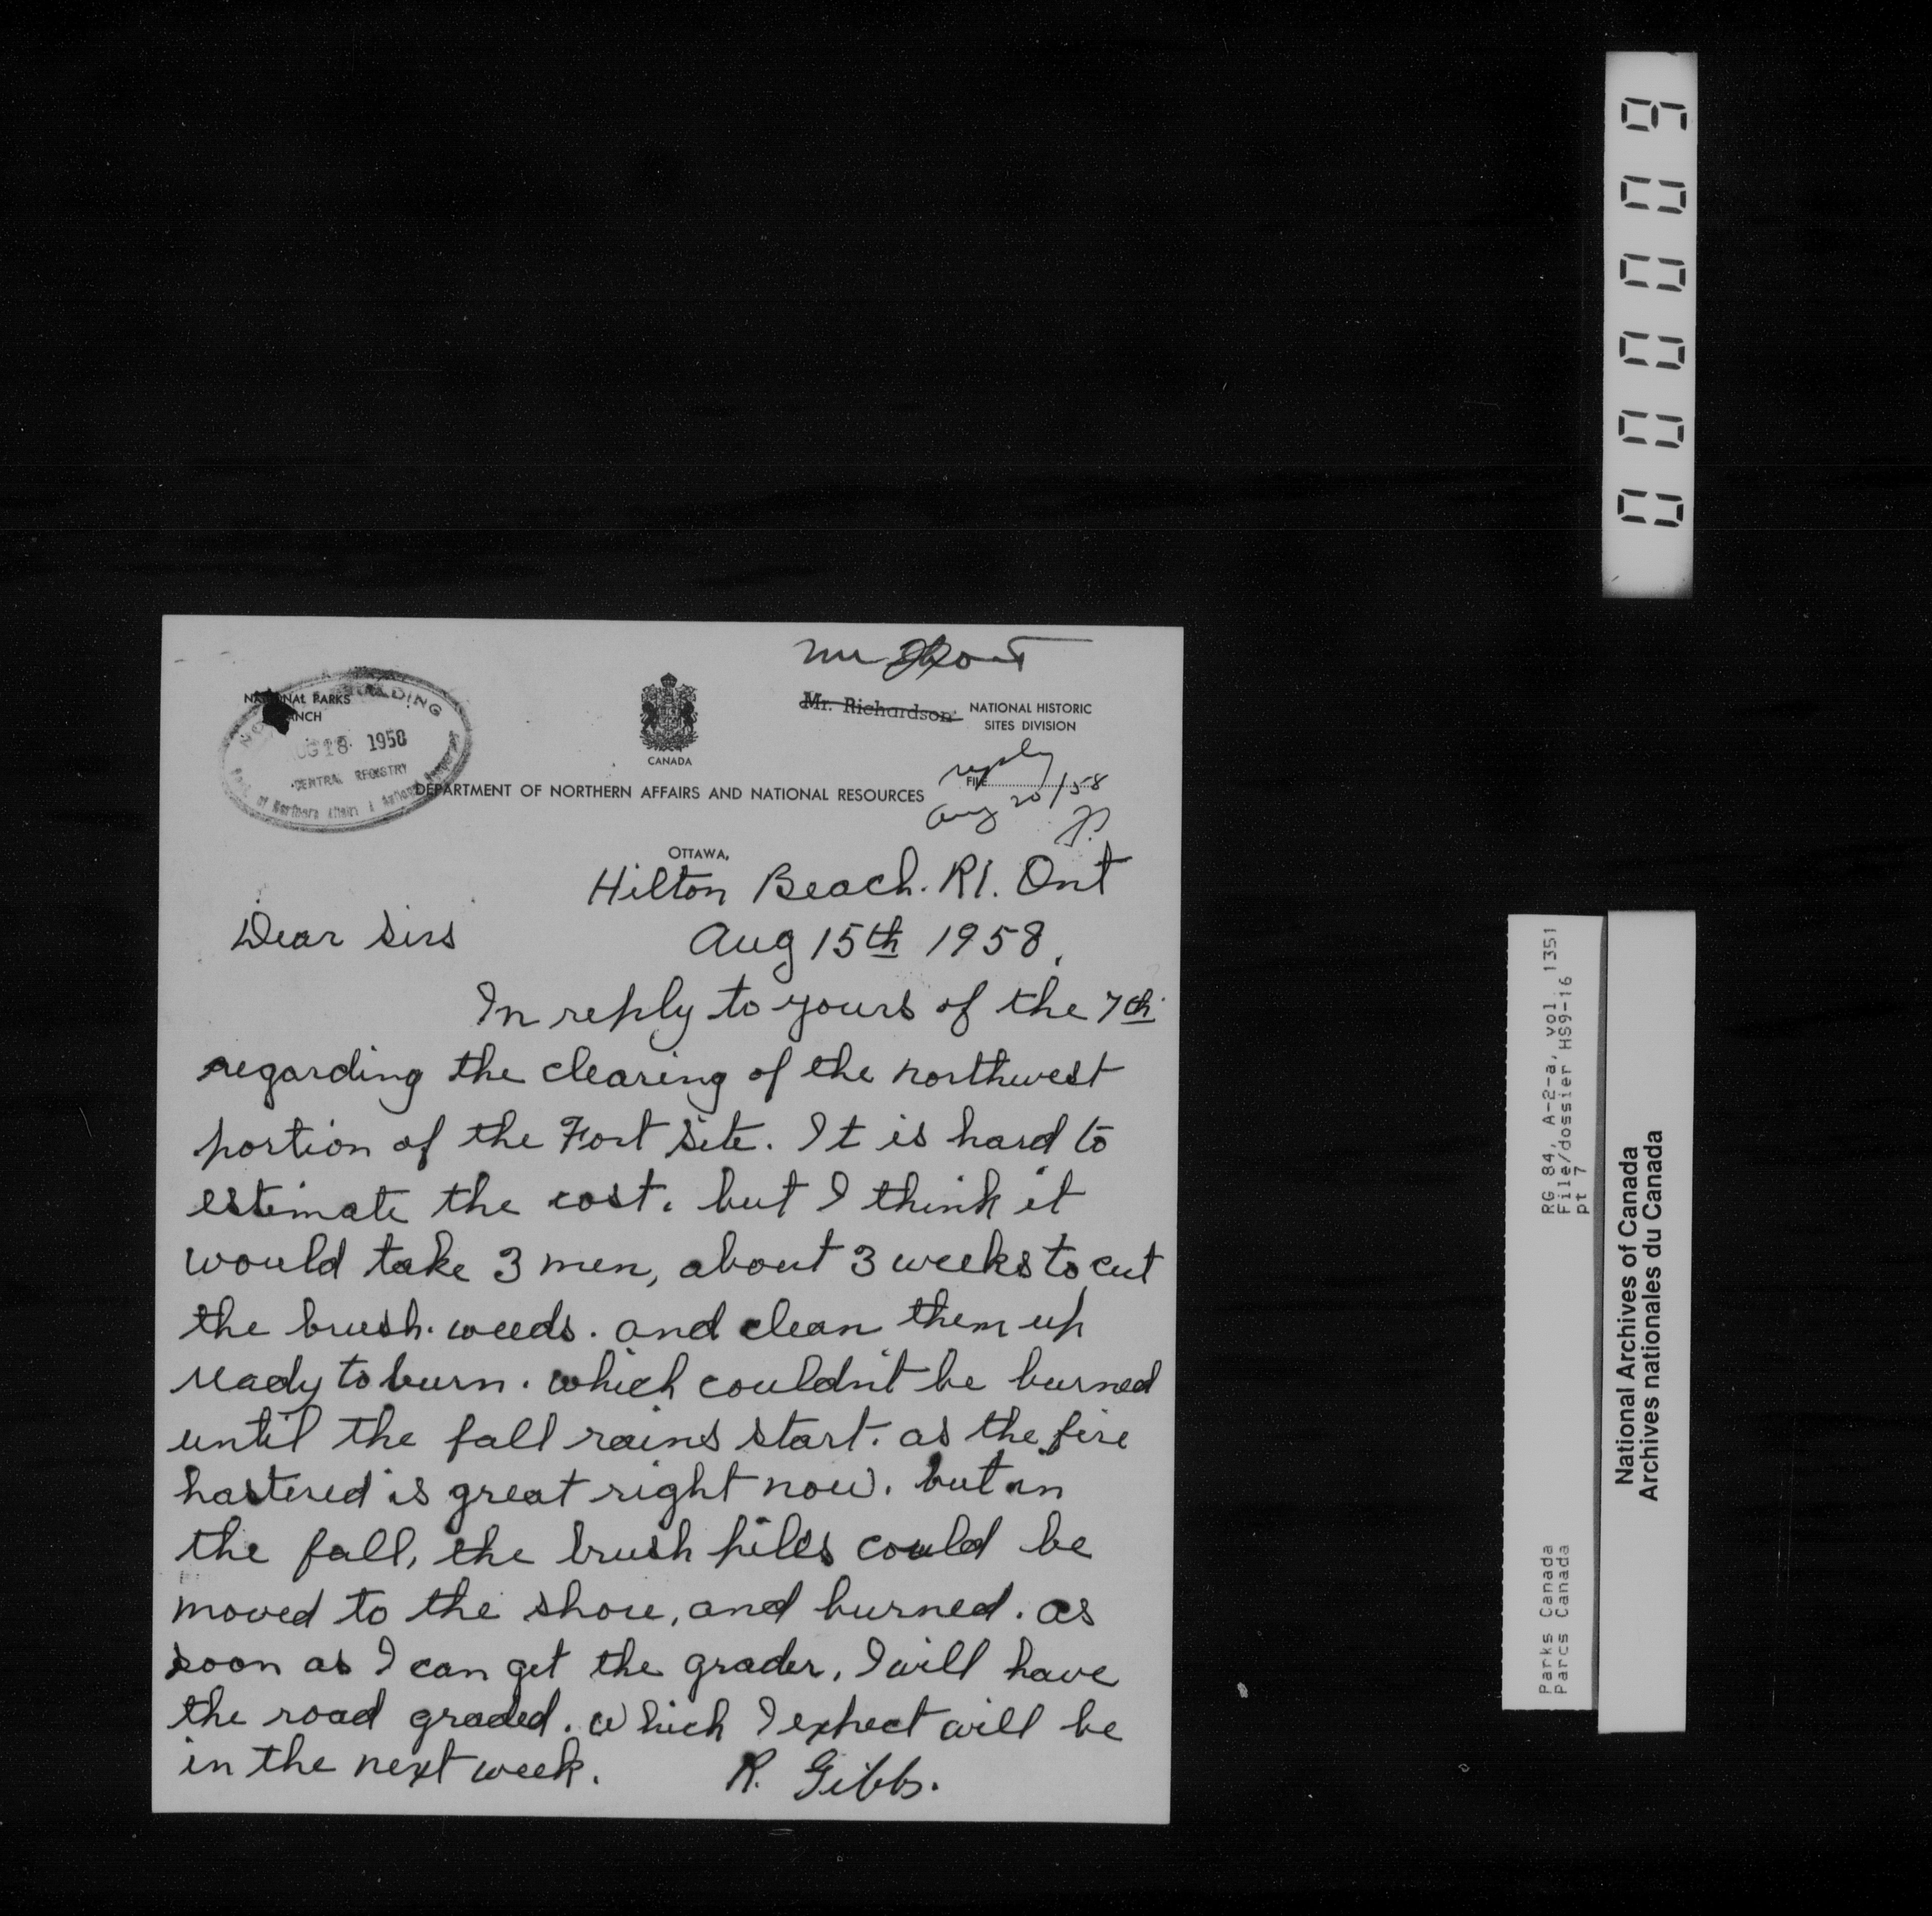 Mr
NATIONAL PARKS
BRANCH
BUILDING
AUG 18 1958
CENTRAL REGISTRY
of Northern Affairs & National
CANADA
Mr. Richardson
NATIONAL HISTORIC
SITES DIVISION
reply
FILE
Aug 20/58
DEPARTMENT OF NORTHERN AFFAIRS AND NATIONAL RESOURCES
OTTAWA,
Hilton Beach. R1. Ont
Dear Sirs
Aug 15th 1958.
In reply to yours of the 7th
regarding the clearing of the northwest
portion of the Fort Site. It is hard to
estimate the cost. but I think it
would take 3 men, about 3 weeks to cut
the brush. weeds. and clean them up
ready to burn. which couldn't be burned
until the fall rains start. as the fire
hastered is great right now. but in
the fall, the brush piles could be
moved to the shore, and burned. as
soon as I can get the grader, I will have
the road graded. which I expect will be
in the next week.
R. Gibbs.
000009
RG 84, A-2-a, vol. 1351
File/dossier HS9-16
pt 7
Parks Canada
Parcs Canada
National Archives of Canada
Archives nationales du Canada